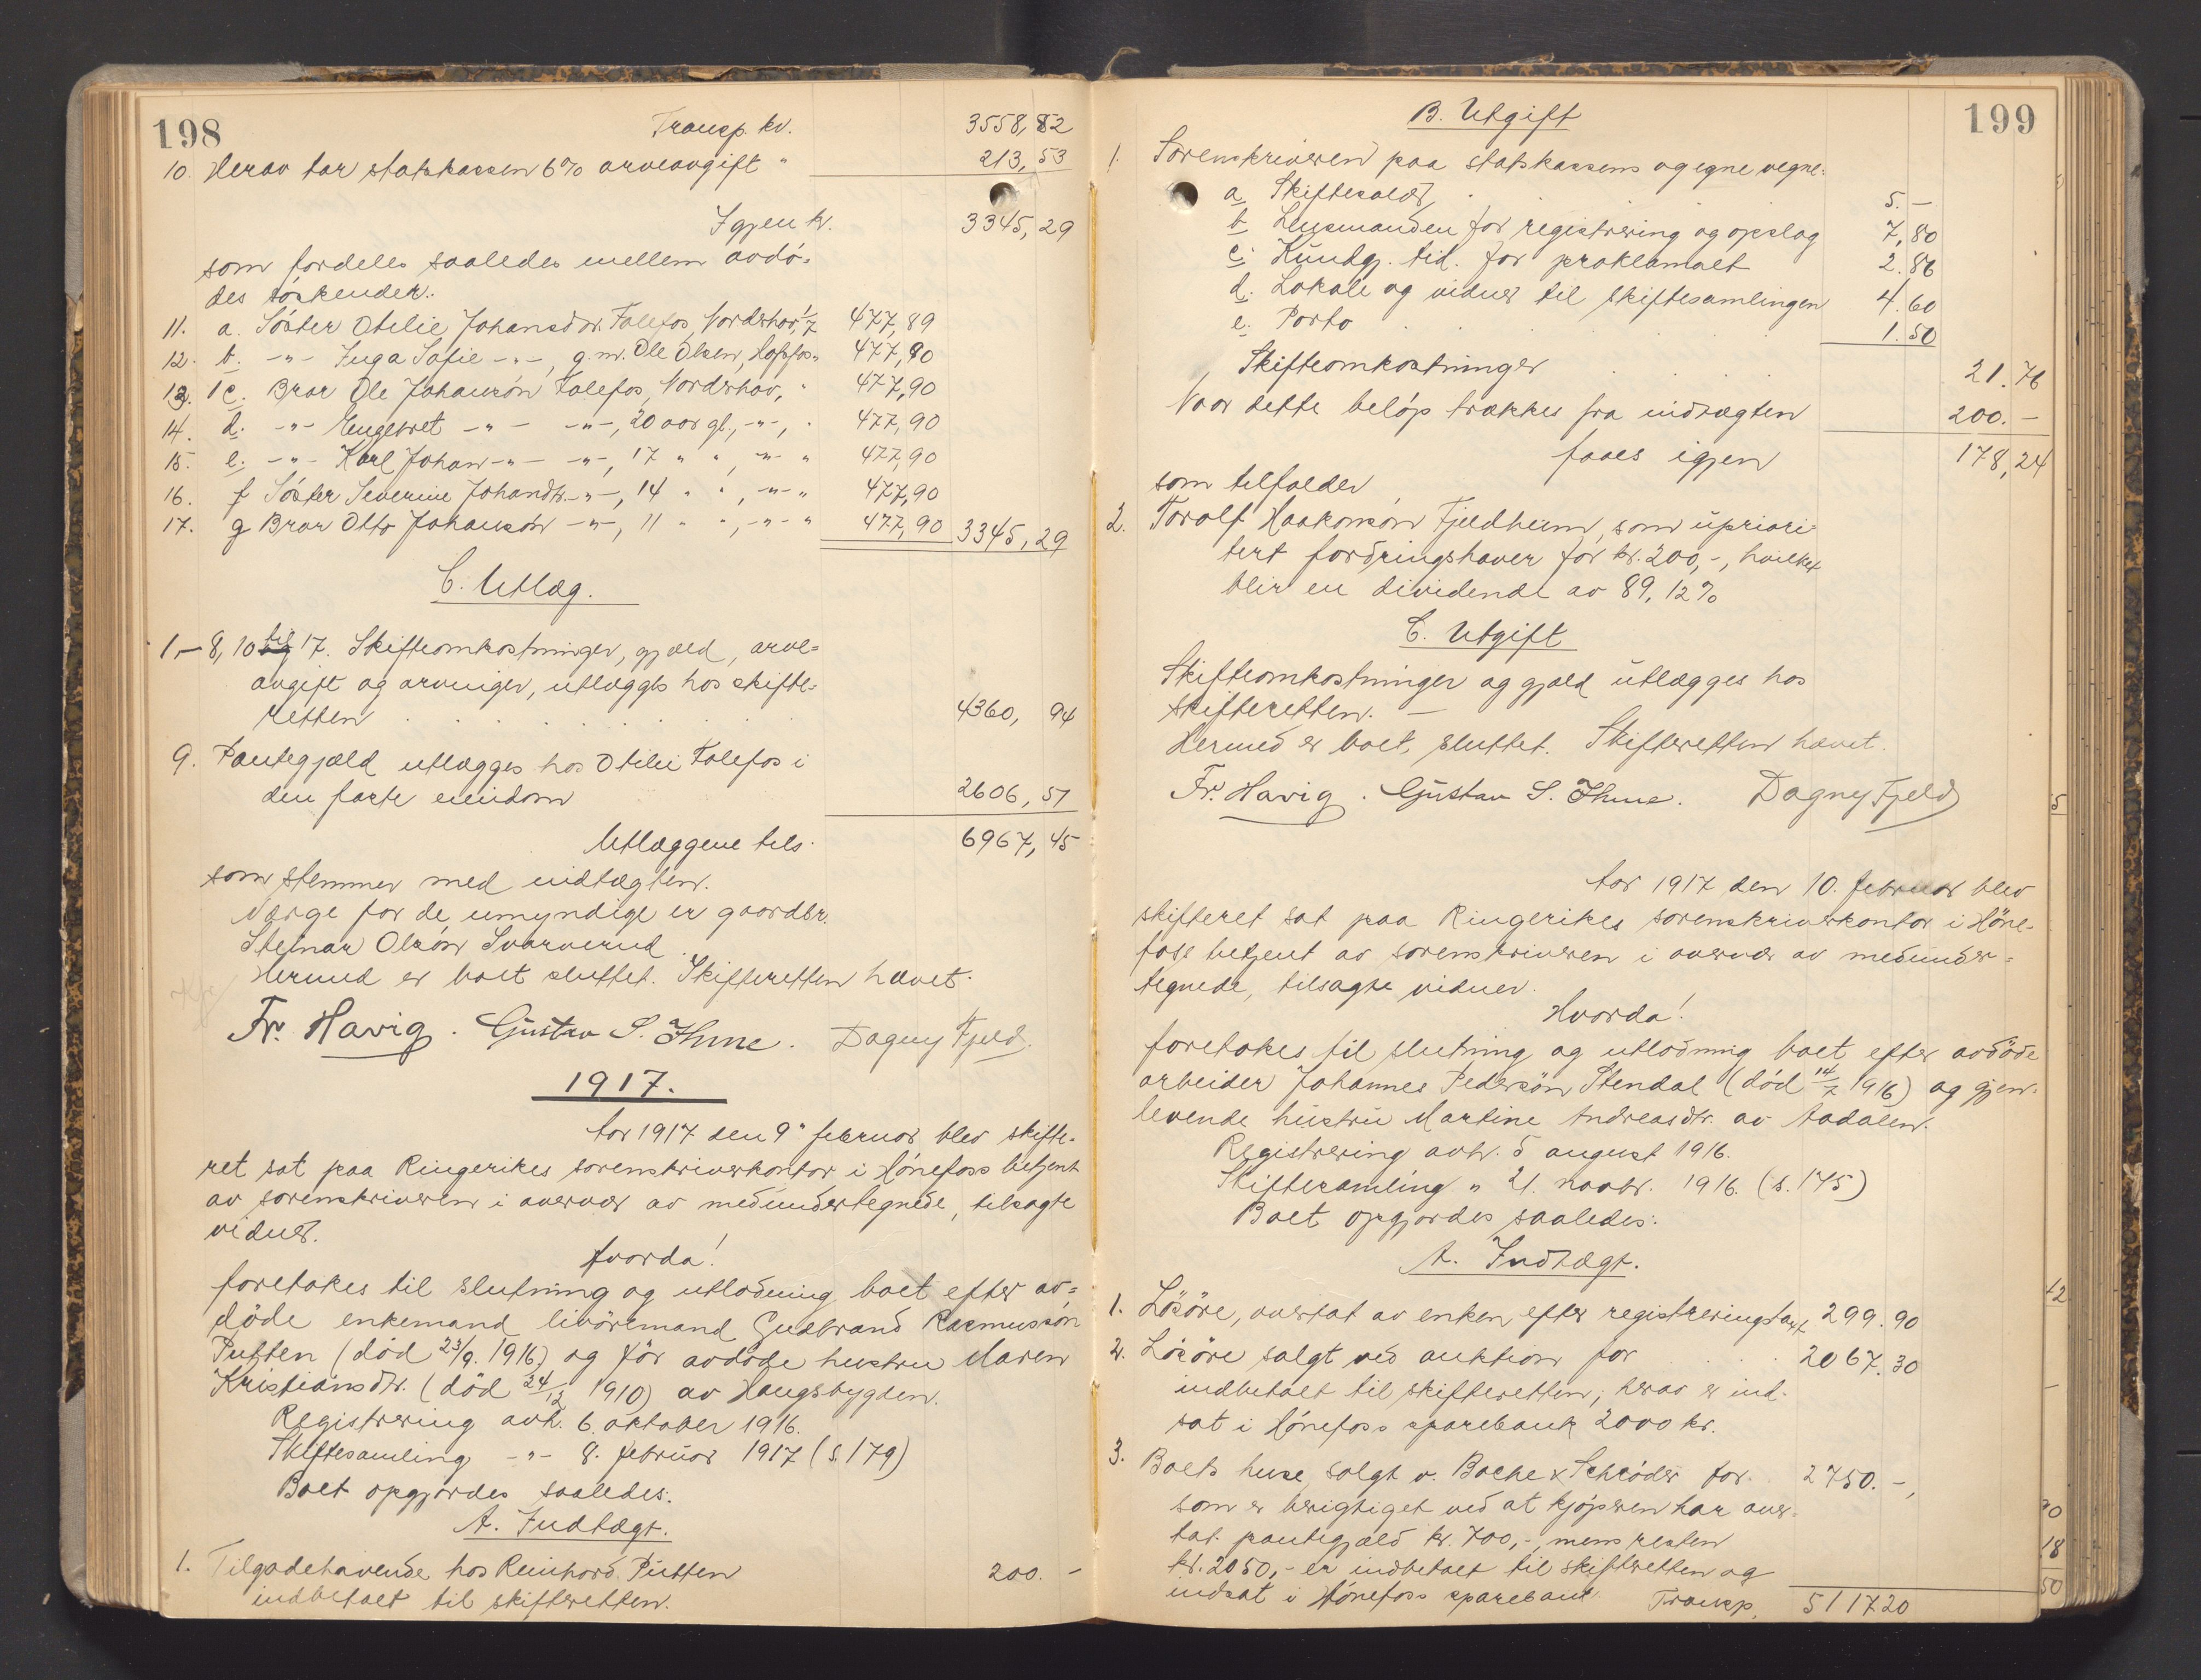 198
Transp. kr. 3558,82
10. Herav tar statskassen 6% arveavgift " 213,53
Igjen kr. 3345,29
som fordeles saaledes mellem avdö-
des söskender:
11. a. Söster Otelie Johansdtr. Falefos, Norderhov, 1/7 477,89
12. b. -"- Inga Sofie -"-, g. m. Ole Olsen, Hofsfos " 477,90
13. c. Bror Ole Johansön Falefos, Norderhov, " 477,90
14. d. -"- Engebret -"- -"-, 20 aar gl., -"-, " 477,90
15. e. -"- Karl Johan -"- -"-, 17 " " , -"- " 477,90
16. f Söster Severine Johandtr. -"-, 14 " " , -"- " 477,90
17. g Bror Otto Johansön -"-, 11 " " , -"- " 477,90 3345,29
C. Utlæg.
1-8, 10 til 17. Skifteomkostninger, gjæld, arve-
avgift og arvinger, utlægges hos skifte-
retten . . . . . . . . 4360,94
9. Pantegjæld utlægges hos Otilie Falefos i
den faste eiendom 2606,51
Utlæggene tils. 6967,45
som stemmer med indtægten.
Værge for de umyndige er gaardbr.
Steinar Olsön Svarverud.
Hermed er boet sluttet. Skifteretten hævet.
Fr. Havig. Gustav S. Ihme. Dagny Fjeld.
1917.
Aar 1917 den 9de februar blev skifte-
ret sat paa Ringerikes sorenskriverkontor i Hönefoss betjent
av sorenskriveren i overvær av medundertegnede, tilsagte
vidner.
Hvorda!
foretokes til slutning og utlodning boet efter av-
döde enkemand livöremand Gudbrand Rasmussön
Putten (död 23/9. 1916) og för avdöde hustru Maren
Kristiansdtr. (död 24/12 1910) av Haugsbygden.
Registrering avh. 6. oktober 1916.
Skiftesamling -"- 8. februar 1917 (s. 179)
Boet opgjordes saaledes:
A. Indtægt.
1. Tilgodehavende hos Reinhard Putten 200.-
indbetalt til skifteretten.
199
B. Utgift
1. Sorenskriveren paa statskassens og egne vegne:
a. Skiftesalær, . . . 5.-
b. Lensmanden for registrering og opslag 7,80
c. Kundgj. tid. for proklamaet 2.86
d. Lokale og vidner til skiftesamlingen 4.60
e. Porto . . . . . 1.50
Skifteomkostninger . . . 21.76
Naar dette belöp trækkes fra indtægten 200.-
faaes igjen 178,24
som tilfalder
2. Torolf Haakonsön Fjeldheim, som upriori-
tert fordringshaver for kr. 200,-, hvilket
blir en dividende av 89,12%
C. Utgift
Skifteomkostninger og gjæld utlægges hos
skifteretten. -
Hermed er boet sluttet. Skifteretten hævet.
Fr. Havig. Gustav S. Ihme. Dagny Fjeld
Aar 1917 den 10. februar blev
skifteret sat paa Ringerikes sorenskriverkontor i Höne-
foss betjent av sorenskriveren i overvær av medunder-
tegnede, tilsagte vidner.
Hvorda!
foretokes til slutning og utlodning boet efter avdöde
arbeider Johannes Pedersön Stendal (död 14/7 1916) og gjen-
levende hustru Martine Andreasdtr. av Aadalen.
Registrering avh. 5 august 1916.
Skiftesamling " 21. novbr. 1916. (s. 145)
Boet opgjordes saaledes:
A. Indtægt.
1. Lösöre, overtat av enken efter registreringstaxt 299.90
2. Lösöre solgt ved auktion for . . . 2067.30
indbetalt til skifteretten; herav er ind-
sat i Hönefoss sparebank 2000 kr.
3. Boets huse solgt v. Bache & Schröder for 2750.-,
som er berigtiget ved at kjöperen har over-
tat pantegjæld kr. 700,-, mens resten
kr. 2050,- er indbetalt til skifteretten og
indsat i Hönefoss sparebank. Transp. 5117 20